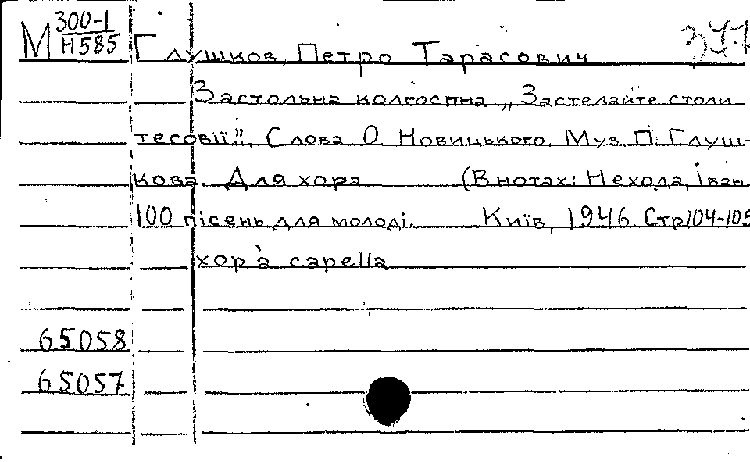 М 300-1
Н585
Глушков, Петро Тарасович
Застольна колгоспна „Застелайте столи
тесовії". Слова О. Новицького. Муз. П. Глуш-
кова. Для хора (В нотах: Нехода, Іван
100 пісень для молоді. Київ, 1946. Стр 104-105
хор a capella
65058
65057